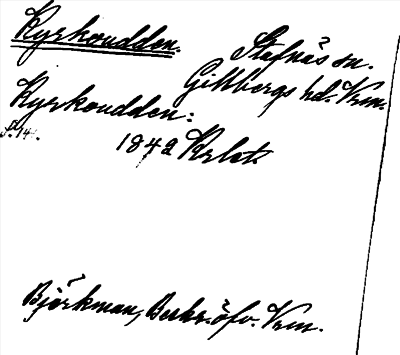 Kyrkoudden.
Stafnäs sn.
Gillbergs hd. Vrm.
Kyrkoudden:
S. 14.
1842 Krlbt.
Björkman, Beskr. öfv. Vrm.